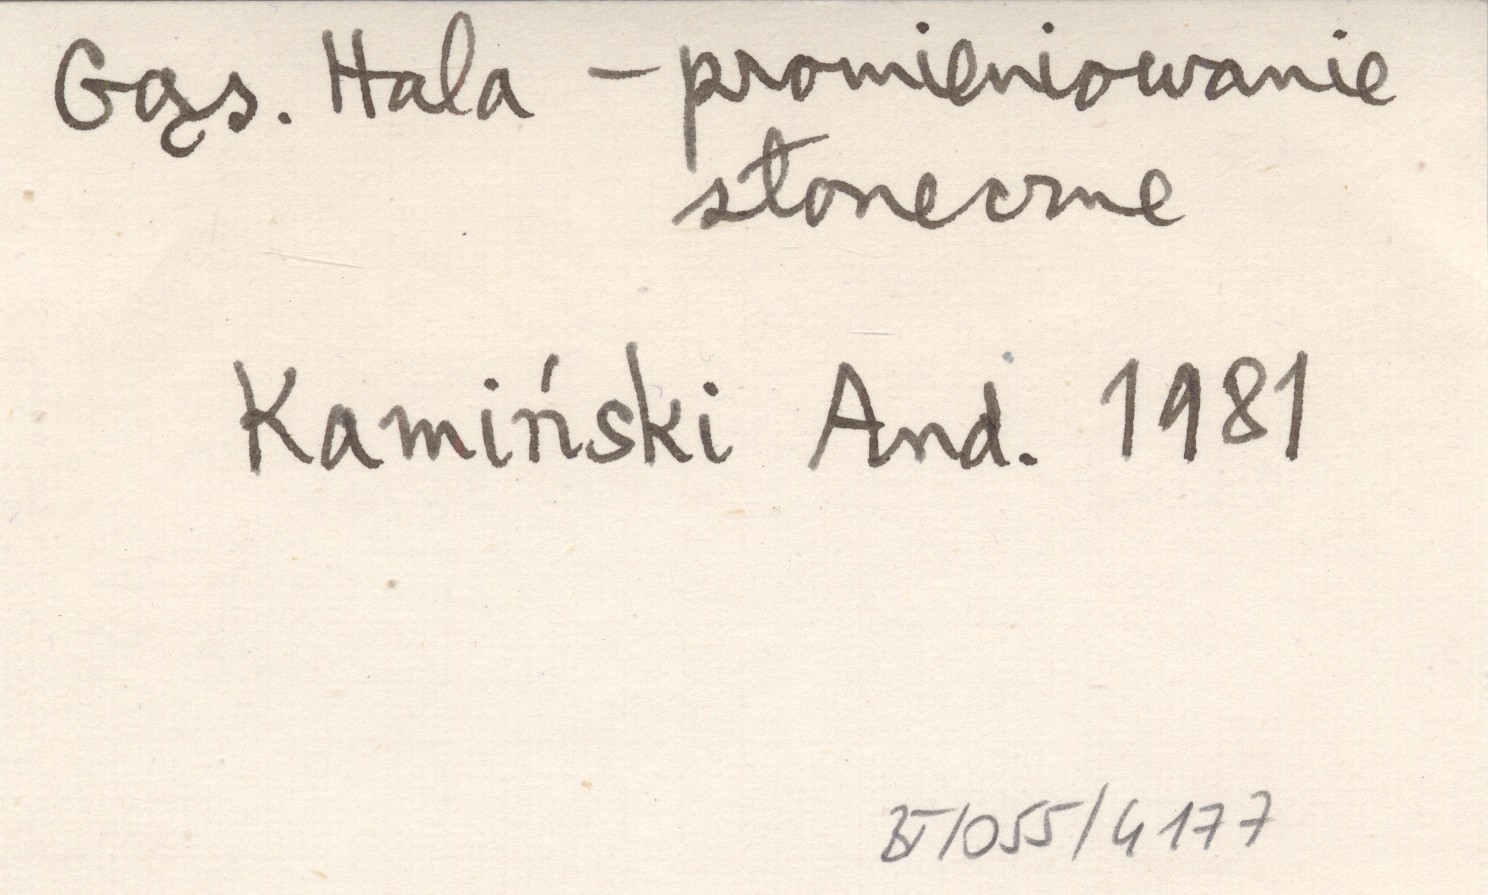 Gąs. Hala – promieniowanie
słoneczne
Kamiński And. 1981
BT/055/4177